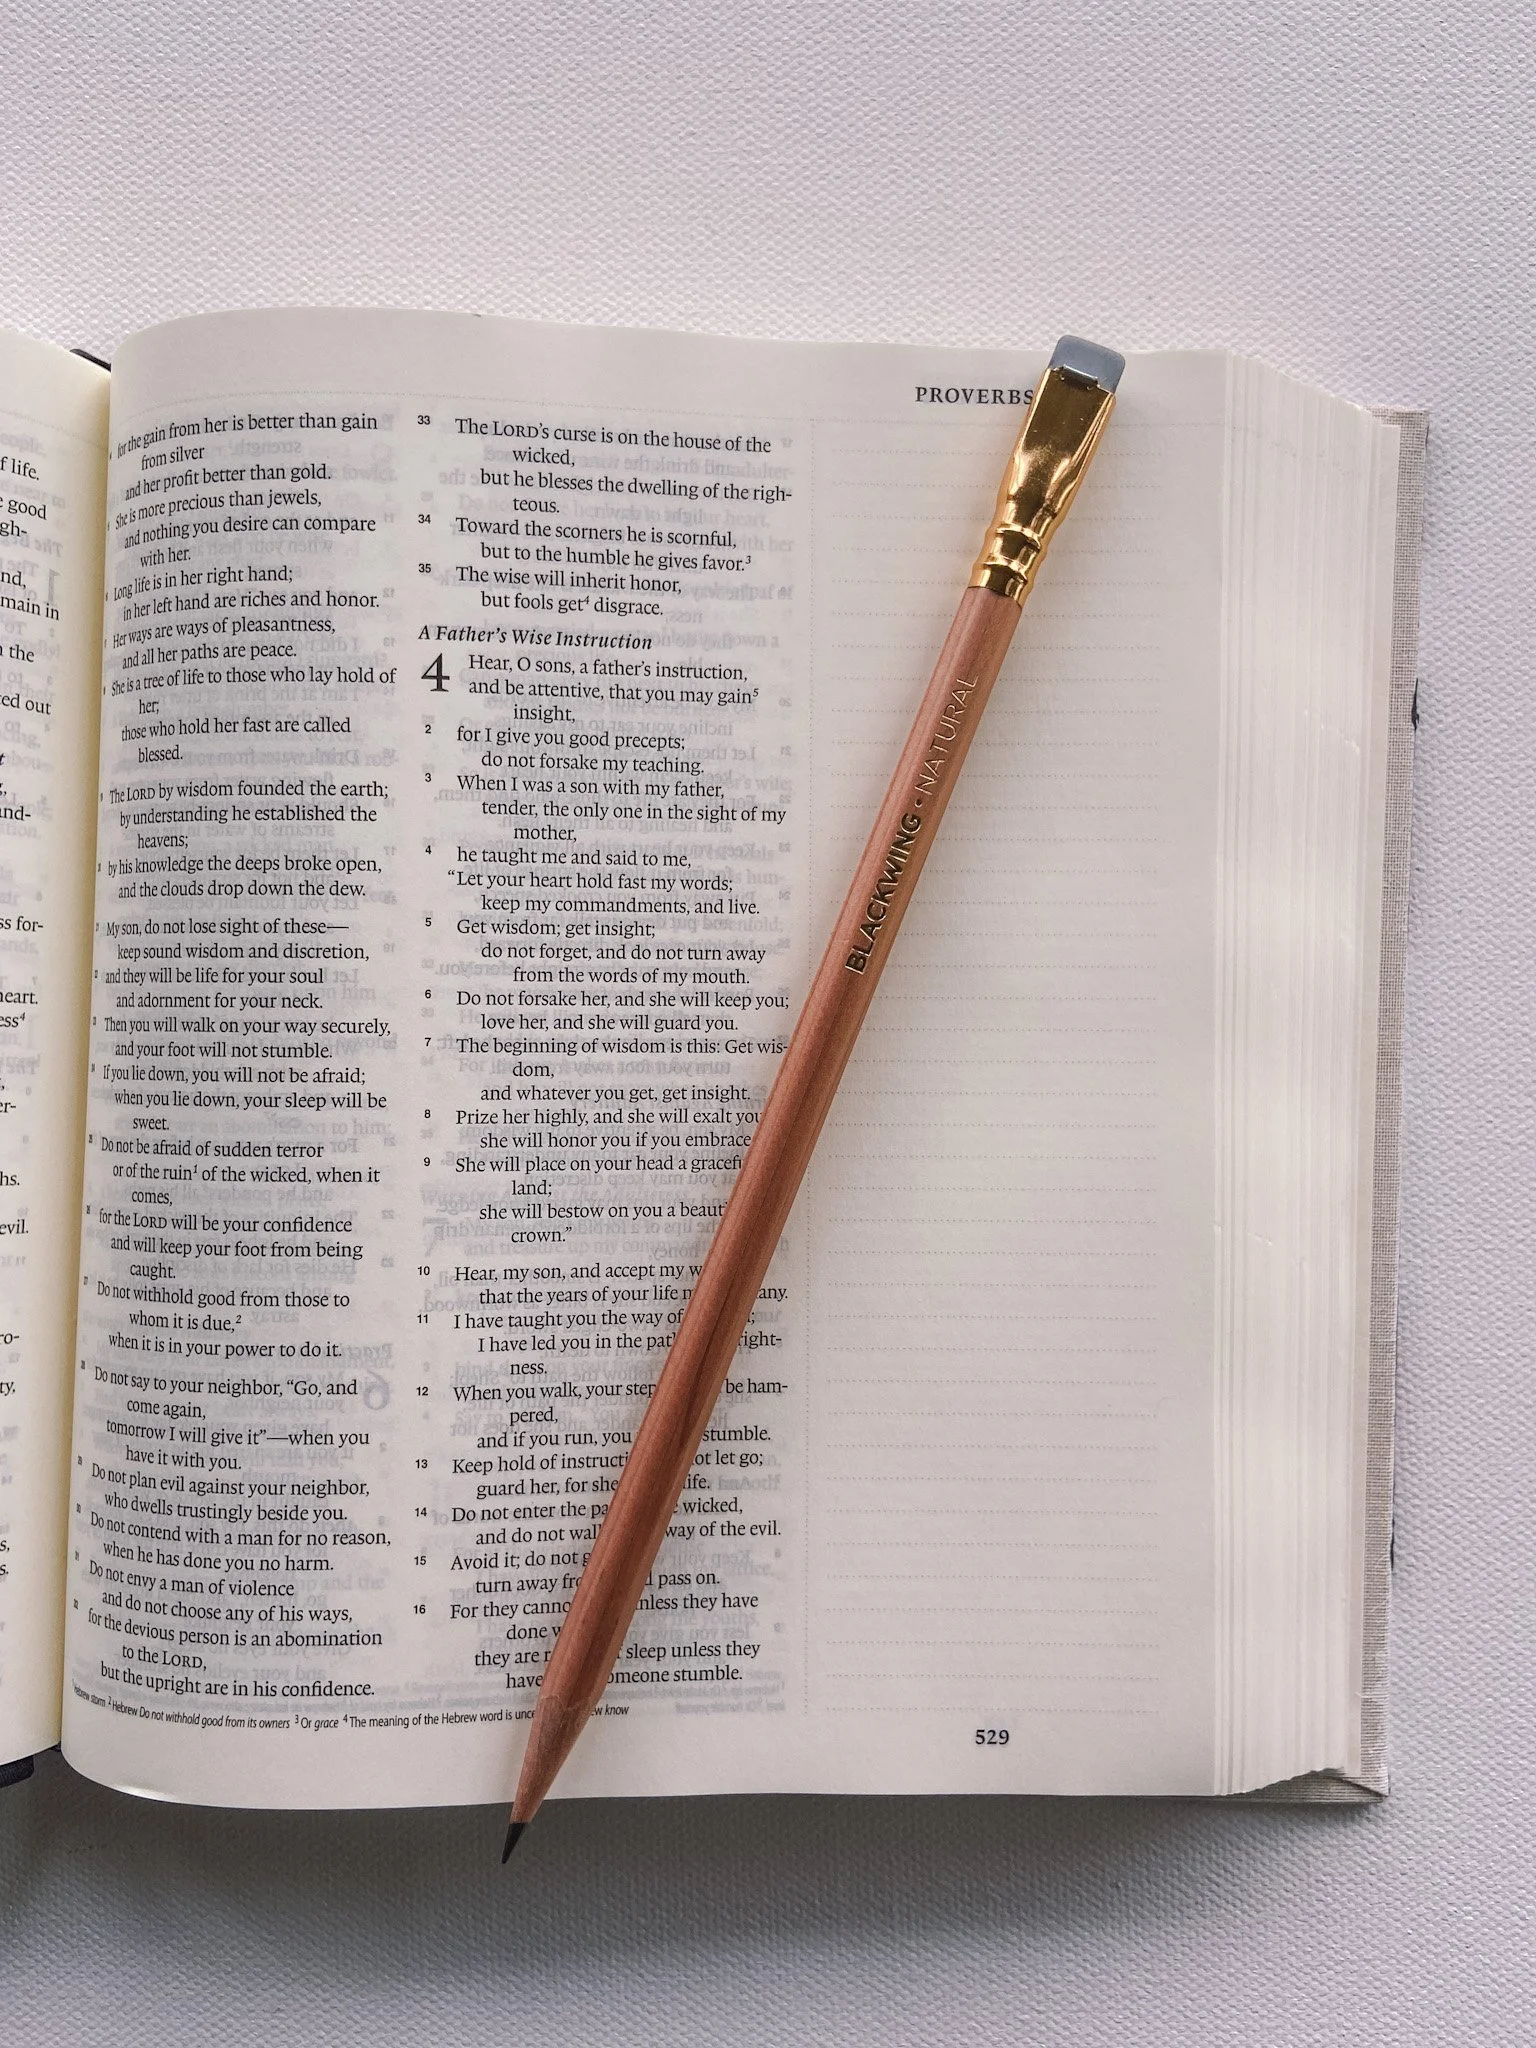 f life.
good
gh-
nd,
main in
the
ed out
nd-
ss for-
heart.
ess⁴
er-
hs.
evil.
ro-
ty,
s,
s.
for the gain from her is better than gain
from silver
and her profit better than gold.
She is more precious than jewels,
and nothing you desire can compare
with her.
Long life is in her right hand;
in her left hand are riches and honor.
Her ways are ways of pleasantness,
and all her paths are peace.
She is a tree of life to those who lay hold of
her;
those who hold her fast are called
blessed.
The LORD by wisdom founded the earth;
by understanding he established the
heavens;
by his knowledge the deeps broke open,
and the clouds drop down the dew.
My son, do not lose sight of these—
keep sound wisdom and discretion,
and they will be life for your soul
and adornment for your neck.
Then you will walk on your way securely,
and your foot will not stumble.
If you lie down, you will not be afraid;
when you lie down, your sleep will be
sweet.
Do not be afraid of sudden terror
or of the ruin¹ of the wicked, when it
comes,
for the LORD will be your confidence
and will keep your foot from being
caught.
Do not withhold good from those to
whom it is due,²
when it is in your power to do it.
Do not say to your neighbor, “Go, and
come again,
tomorrow I will give it”—when you
have it with you.
Do not plan evil against your neighbor,
who dwells trustingly beside you.
Do not contend with a man for no reason,
when he has done you no harm.
Do not envy a man of violence
and do not choose any of his ways,
for the devious person is an abomination
to the LORD,
but the upright are in his confidence.
PROVERBS
33 The LORD’s curse is on the house of the
wicked,
but he blesses the dwelling of the righ-
teous.
34 Toward the scorners he is scornful,
but to the humble he gives favor.³
35 The wise will inherit honor,
but fools get⁴ disgrace.
A Father’s Wise Instruction
4 Hear, O sons, a father’s instruction,
and be attentive, that you may gain⁵
insight,
2 for I give you good precepts;
do not forsake my teaching.
3 When I was a son with my father,
tender, the only one in the sight of my
mother,
4 he taught me and said to me,
“Let your heart hold fast my words;
keep my commandments, and live.
5 Get wisdom; get insight;
do not forget, and do not turn away
from the words of my mouth.
6 Do not forsake her, and she will keep you;
love her, and she will guard you.
7 The beginning of wisdom is this: Get wis-
dom,
and whatever you get, get insight.
8 Prize her highly, and she will exalt you
she will honor you if you embrace
9 She will place on your head a gracef
land;
she will bestow on you a beauti
crown.”
10 Hear, my son, and accept my w
that the years of your life m any.
11 I have taught you the way of
I have led you in the pat right-
ness.
12 When you walk, your step be ham-
pered,
and if you run, you stumble.
13 Keep hold of instructi ot let go;
guard her, for she life.
14 Do not enter the pa wicked,
and do not wal way of the evil.
15 Avoid it; do not g
turn away fro pass on.
16 For they canno unless they have
done w
they are r sleep unless they
have omeone stumble.
Hebrew storm ² Hebrew Do not withhold good from its owners ³ Or grace ⁴ The meaning of the Hebrew word is unce ew know
529
BLACKWING · NATURAL